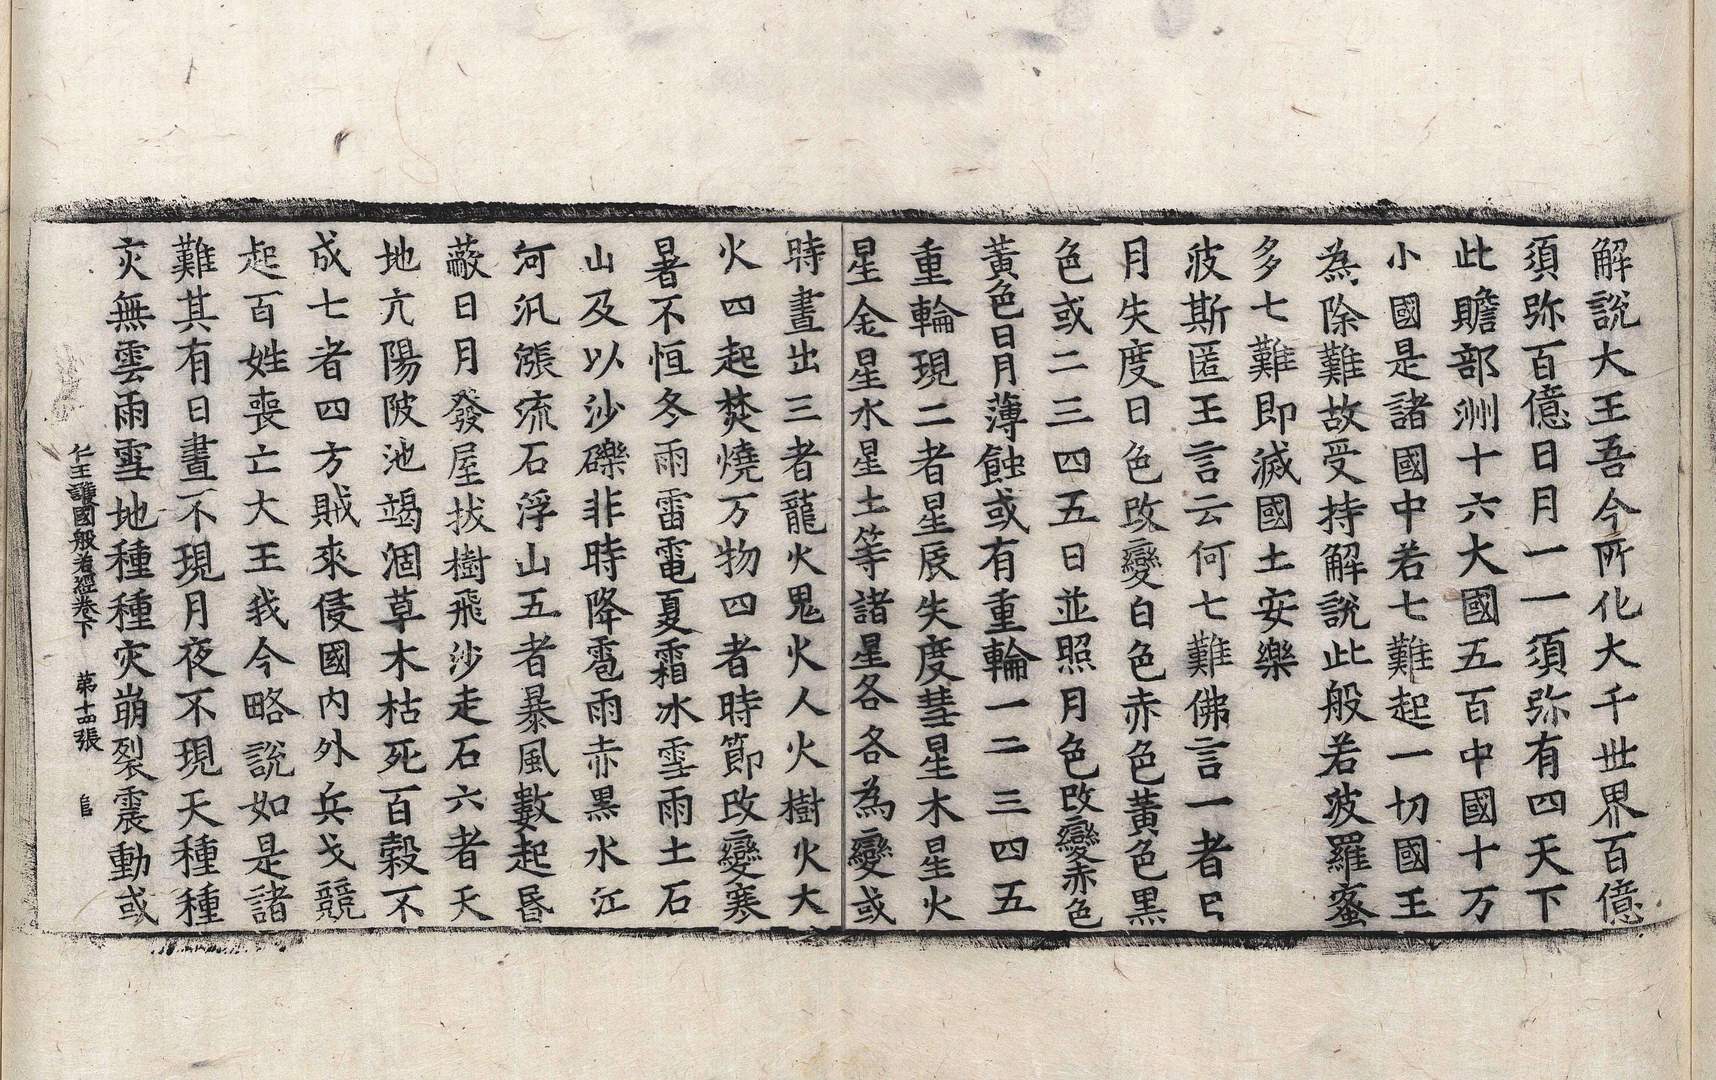 解說大王吾今所化大千世界百億
須弥百億日月一一須弥有四天下
此贍部洲十六大國五百中國十万
小國是諸國中若七難起一切國王
為除難故受持解說此般若波羅蜜
多七難即滅國土安樂
波斯匿王言云何七難佛言一者日
月失度日色改變白色赤色黃色黑
色或二三四五日並照月色改變赤色
黃色日月薄蝕或有重輪一二三四五
重輪現二者星辰失度彗星木星火
星金星水星土等諸星各各為變或
時晝出三者龍火鬼火人火樹火大
火四起焚燒万物四者時節改變寒
暑不恒冬雨雷電夏霜冰雪雨土石
山及以沙礫非時降雹雨赤黑水江
河汎漲流石浮山五者暴風數起昬
蔽日月發屋拔樹飛沙走石六者天
地亢陽陂池竭涸草木枯死百穀不
成七者四方賊來侵國內外兵戈競
起百姓喪亡大王我今略說如是諸
難其有日晝不現月夜不現天種種
灾無雲雨雪地種種灾崩裂震動或
仁王護國般若經卷下 第十四張